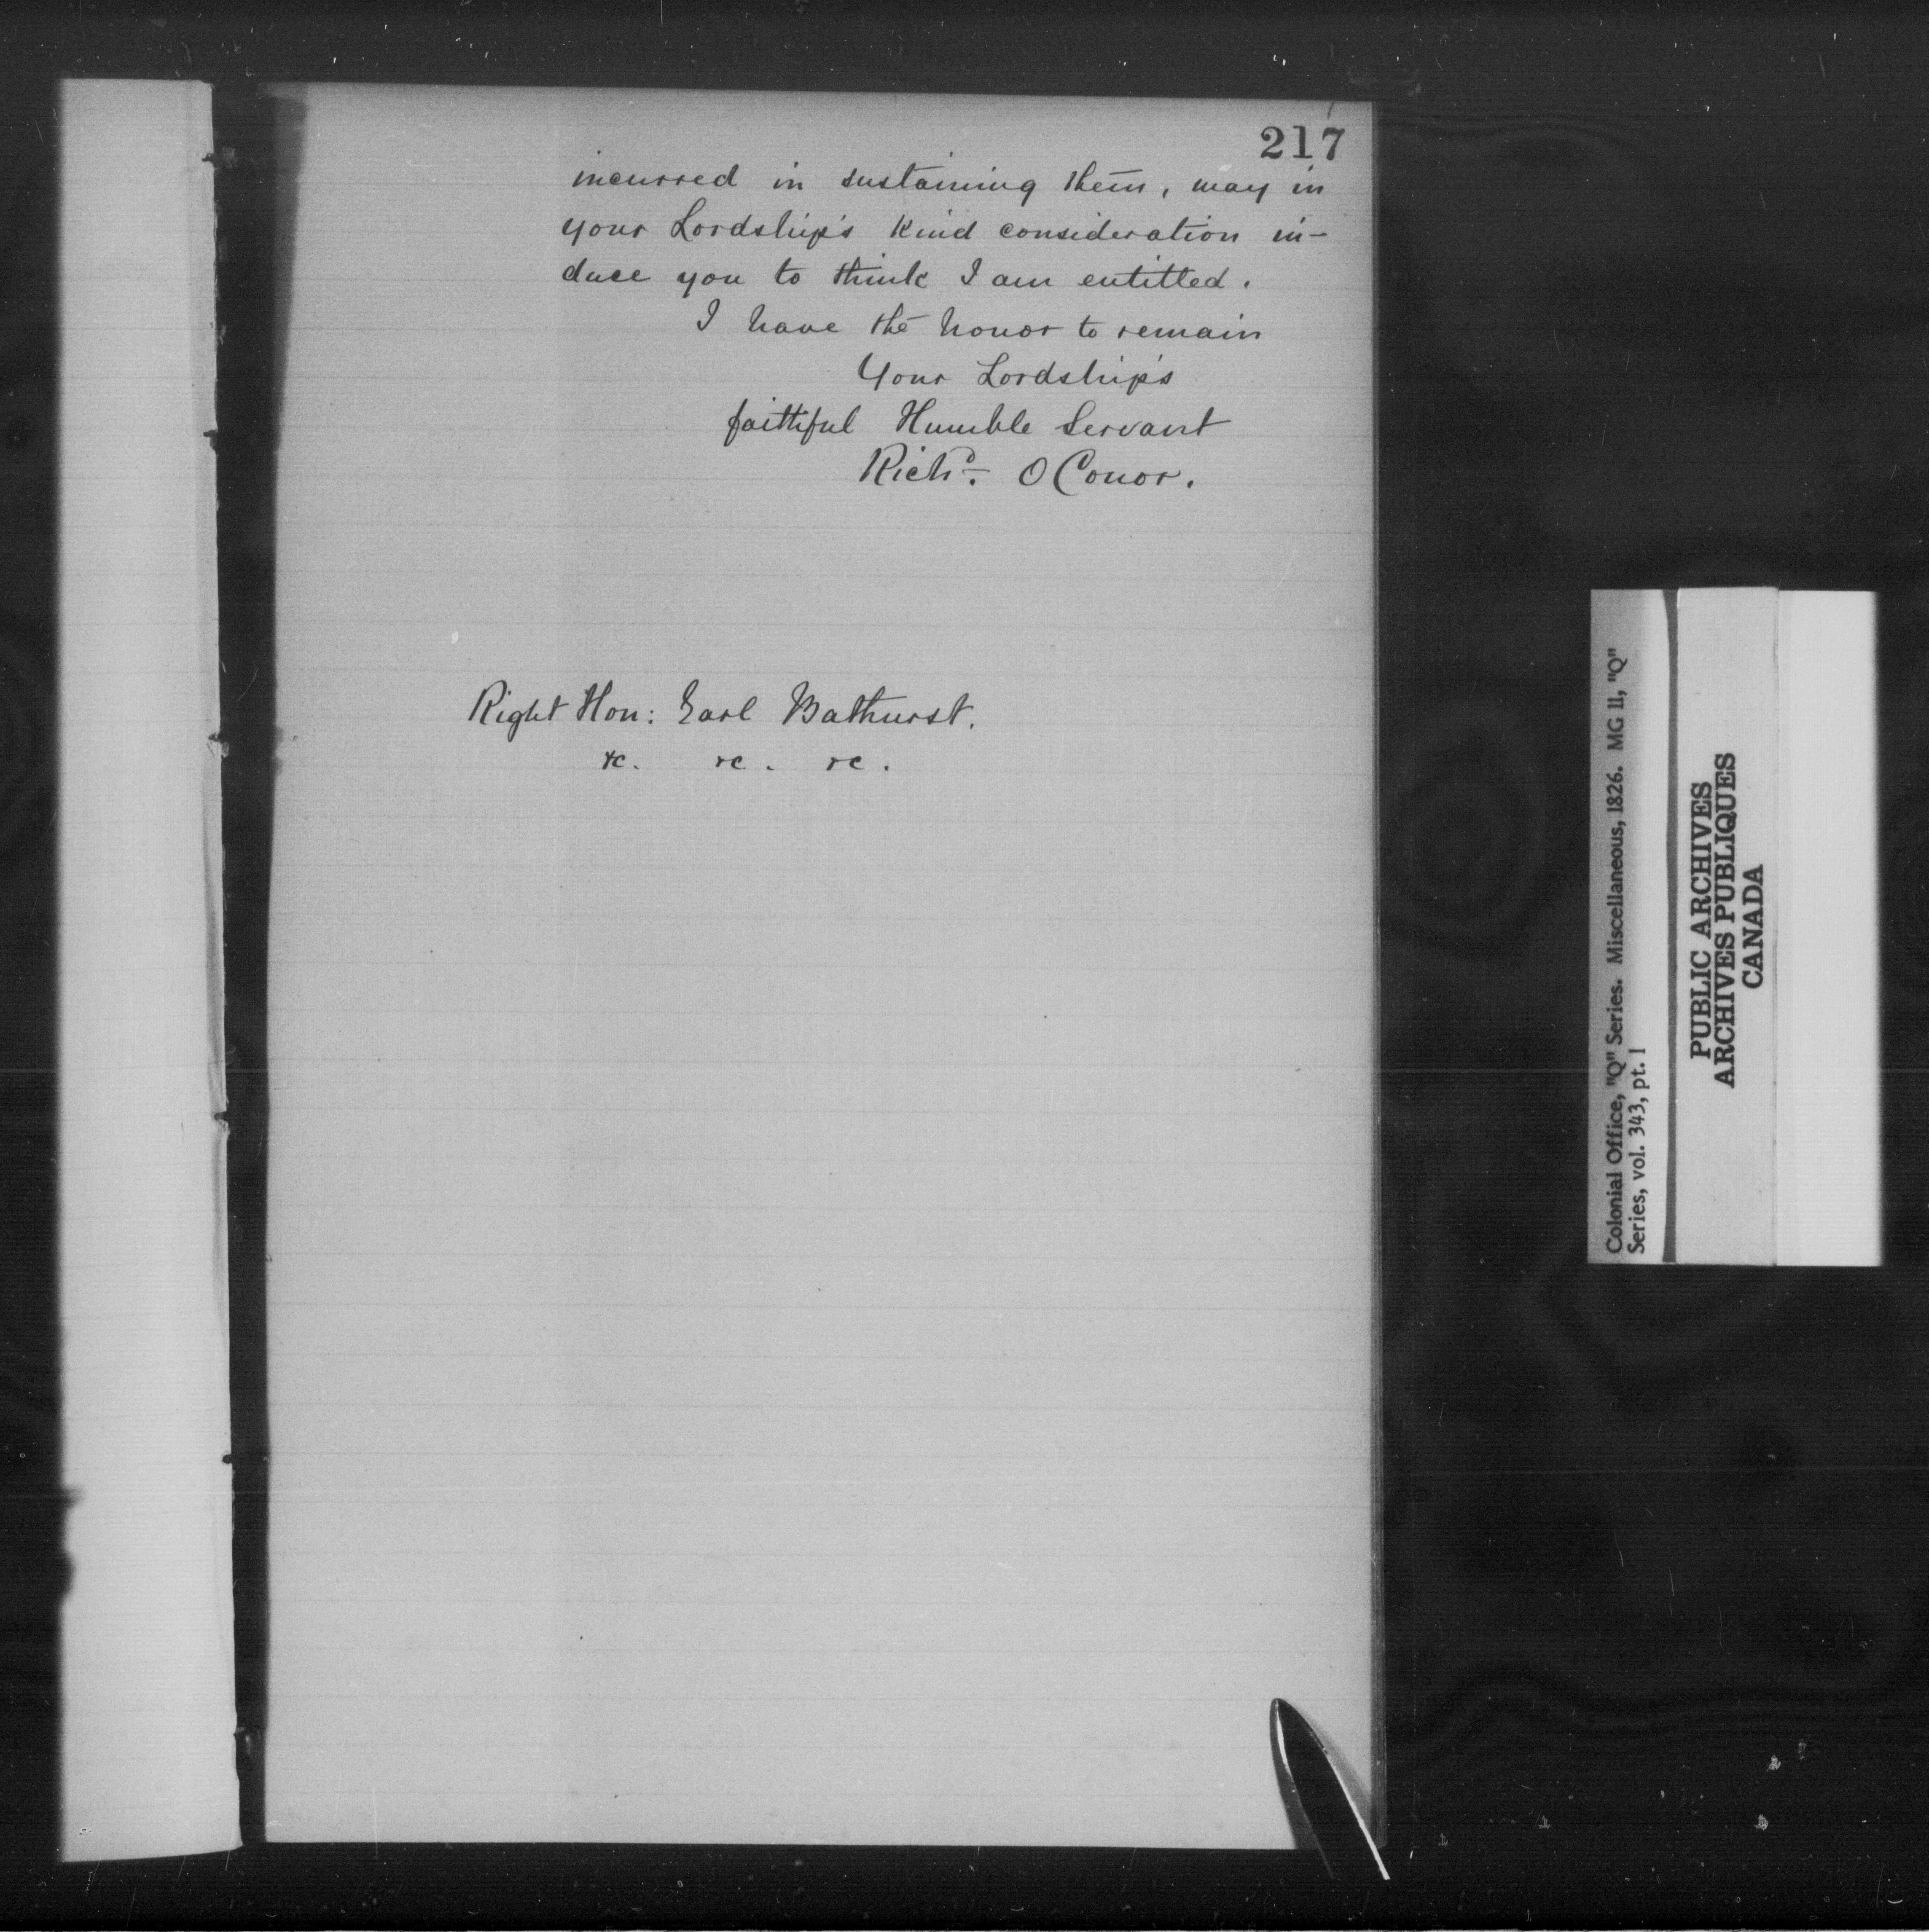 217
incurred in sustaining them, may in
your Lordship's kind consideration in-
duce you to think I am entitled.
I have the honor to remain
Your Lordship's
faithful Humble Servant
Richd. O Conor.
Right Hon: Earl Bathurst.
&c. &c. &c.
Colonial Office, "Q" Series. Miscellaneous, 1826. MG 11, "Q"
Series, vol. 343, pt. 1
PUBLIC ARCHIVES
ARCHIVES PUBLIQUES
CANADA